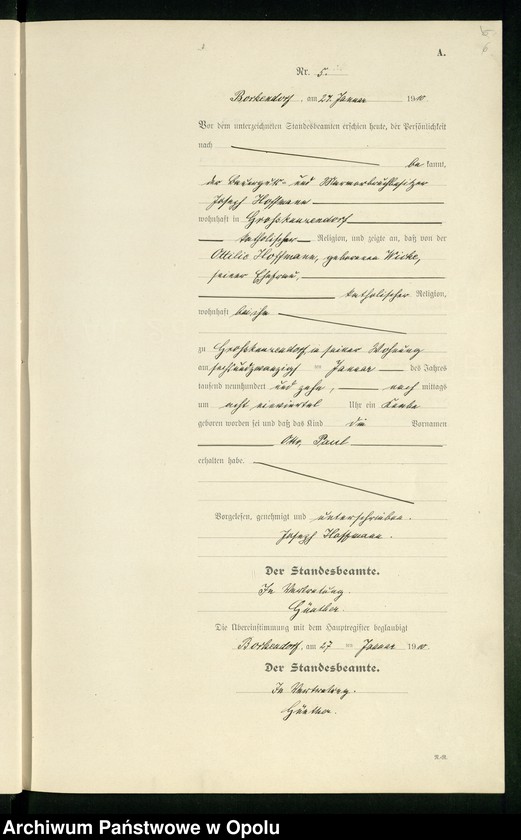 A.
Nr. 5.
Borkendorf, am 27. Januar 1910
Vor dem unterzeichneten Standesbeamten erschien heute, der Persönlichkeit
nach bekannt,
der Bauerguts- und Marmorbruchbesitzer
Joseph Hoffmann
wohnhaft in Großkunzendorf
katholischer Religion, und zeigte an, daß von der
Ottilie Hoffmann, geborenen Wicke,
seiner Ehefrau,
katholischer Religion,
wohnhaft bei ihm
zu Großkunzendorf in seiner Wohnung
am sechsundzwanzigsten Januar des Jahres
tausend neunhundert und zehn, nach mittags
um acht einviertel Uhr ein Knabe
geboren worden sei und daß das Kind die Vornamen
Otto, Paul
erhalten habe.
Vorgelesen, genehmigt und unterschrieben.
Joseph Hoffmann.
Der Standesbeamte.
In Vertretung.
Günther.
Die Übereinstimmung mit dem Hauptregister beglaubigt
Borkendorf, am 27 ten Januar 1910
Der Standesbeamte.
In Vertretung.
Günther.
Archiwum Państwowe w Opolu